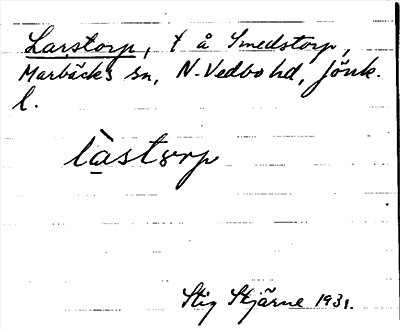 Larstorp, t å Smedstorp,
Marbäcks sn, N. Vedbo hd, Jönk.
l.
làstorp
Stig Skjärne 1931.